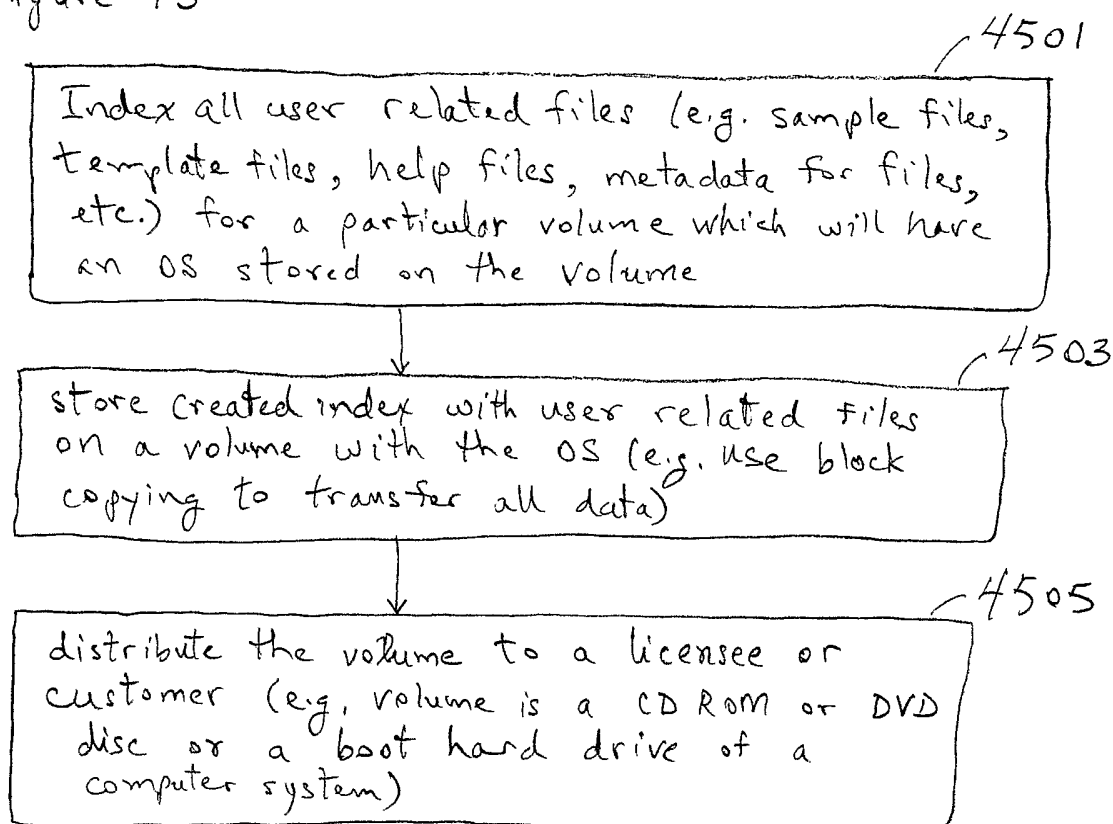 4501
Index all user related files (e.g. sample files,
template files, help files, metadata for files,
etc.) for a particular volume which will have
an OS stored on the volume
4503
store created index with user related files
on a volume with the OS (e.g. use block
copying to transfer all data)
4505
distribute the volume to a licensee or
customer (e.g. volume is a CD ROM or DVD
disc or a boot hard drive of a
computer system)